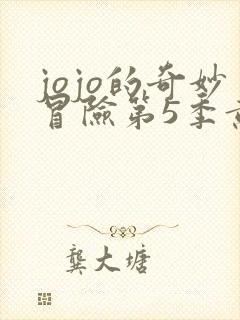 jojo的奇妙
冒險第5季
龔大塘